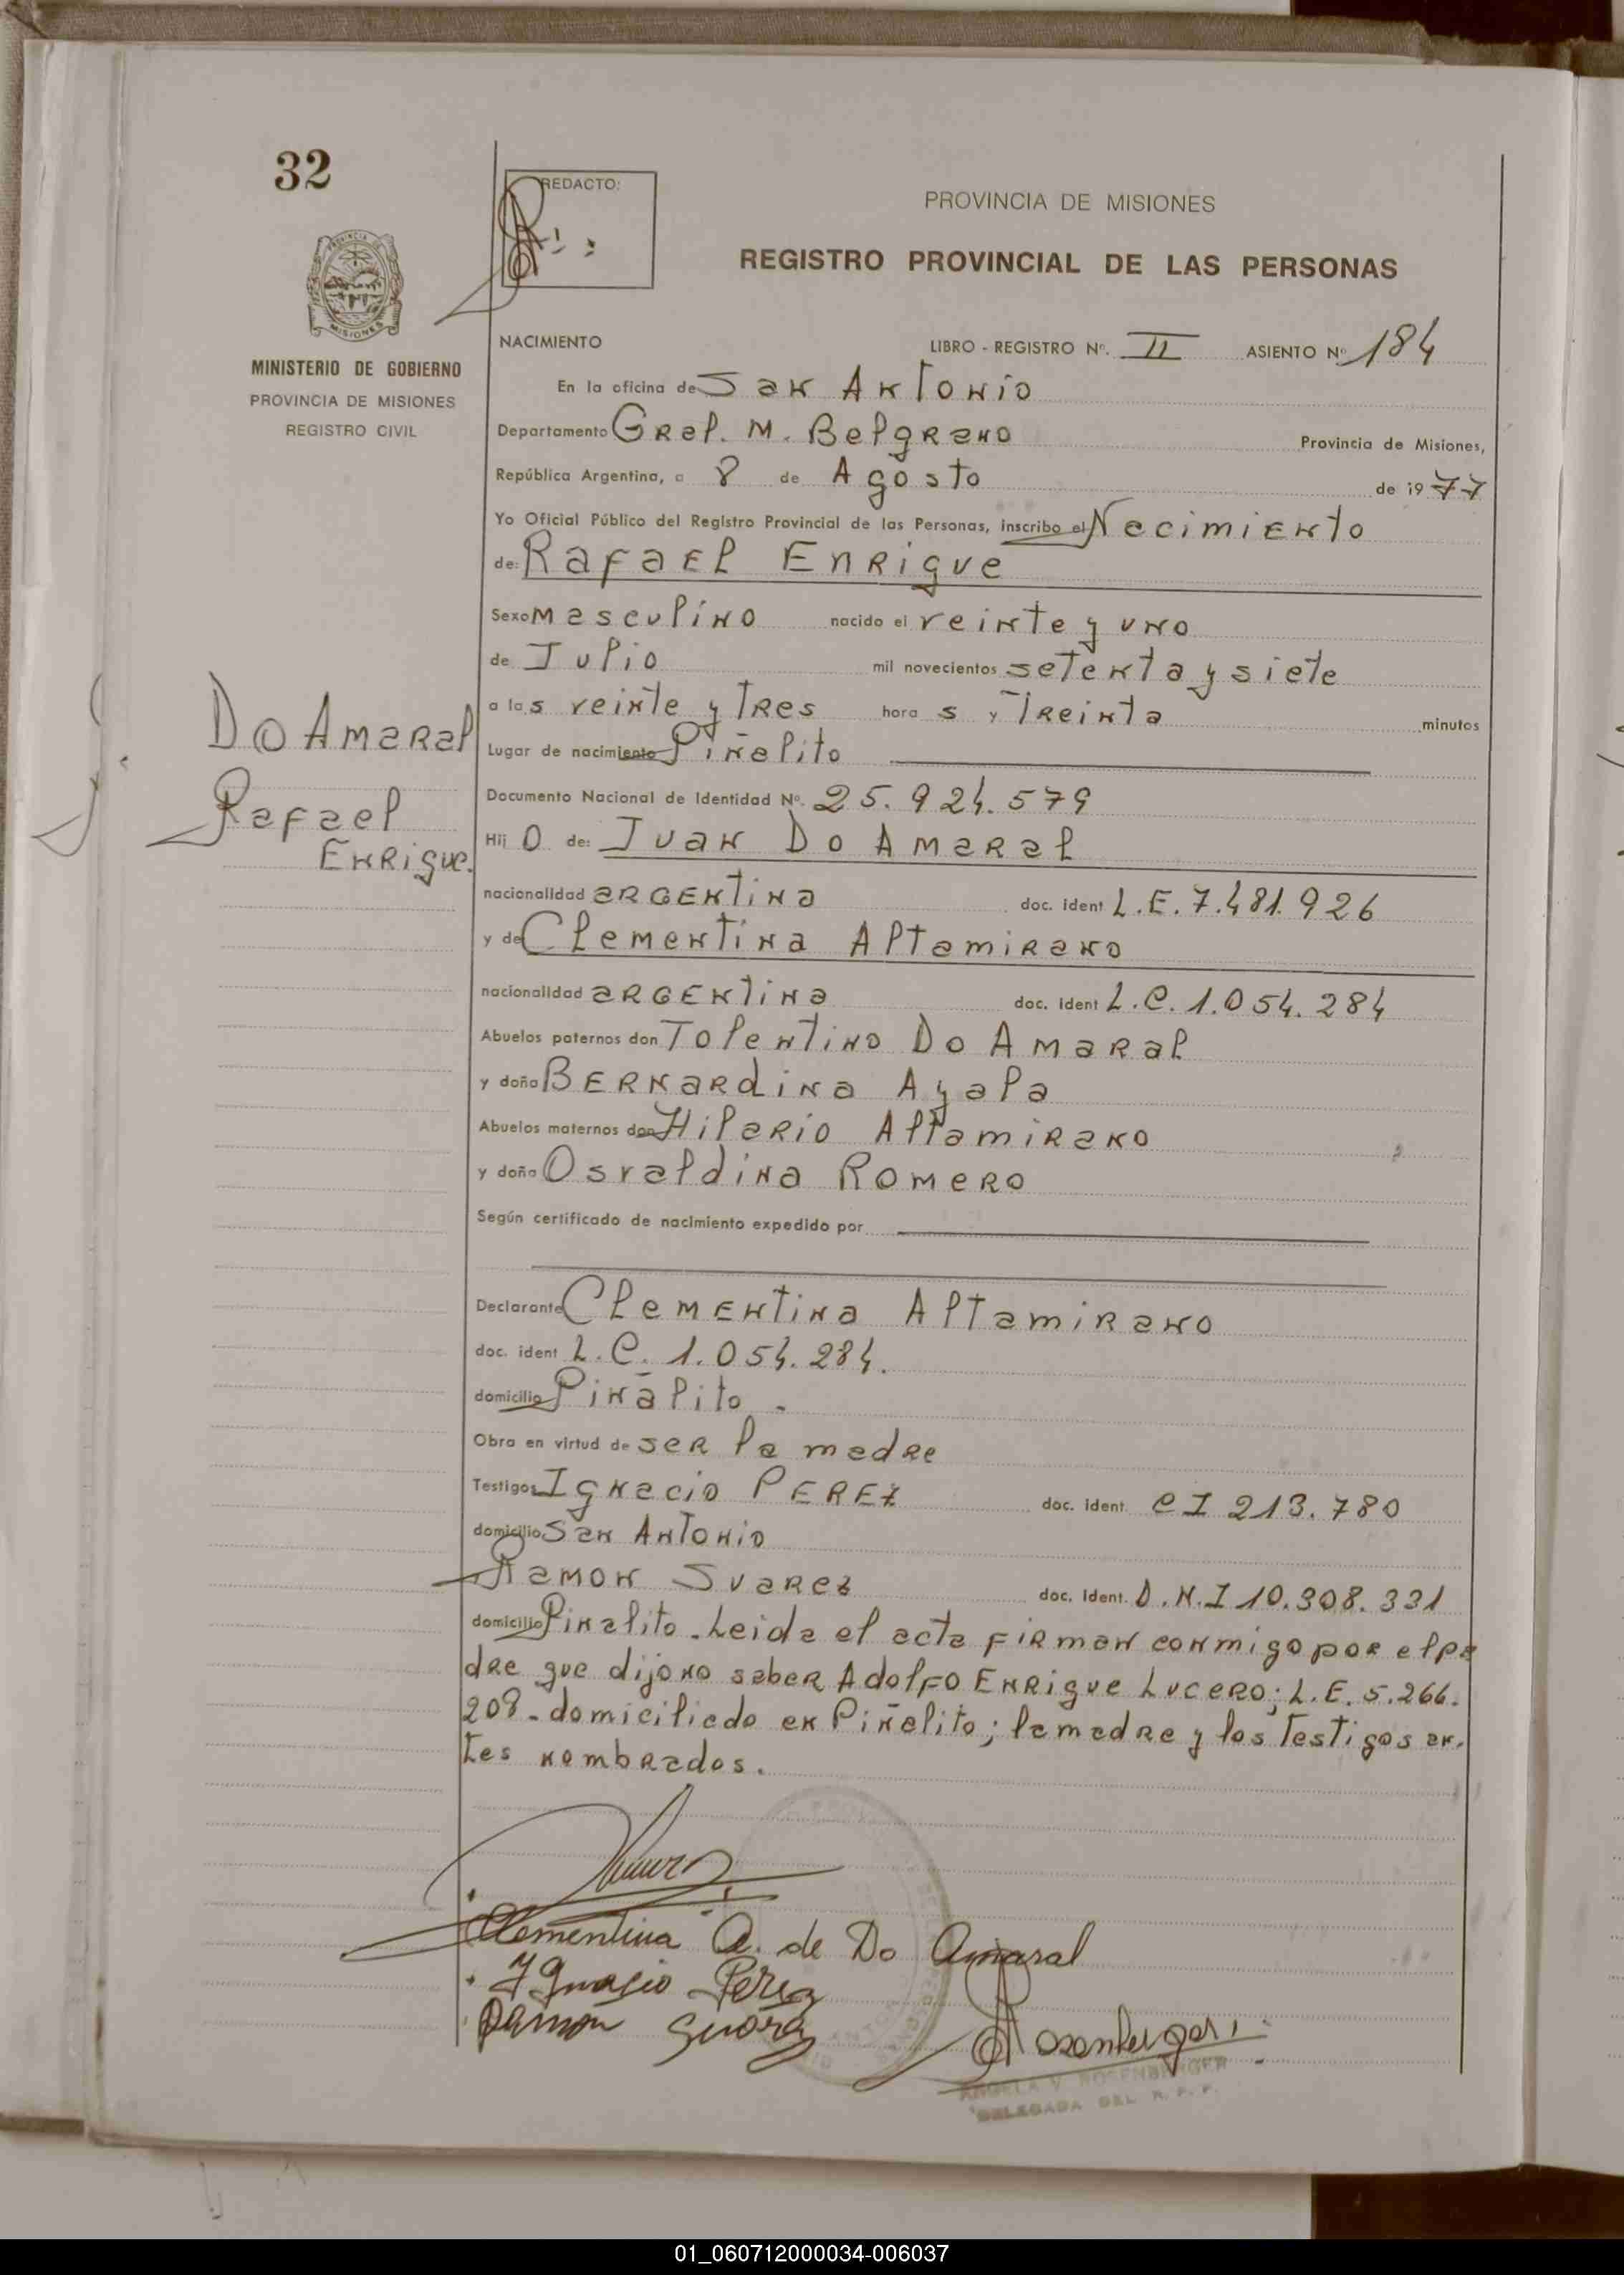 32
REDACTO:
PROVINCIA DE MISIONES
REGISTRO PROVINCIAL DE LAS PERSONAS
MISIONES
MINISTERIO DE GOBIERNO
PROVINCIA DE MISIONES
REGISTRO CIVIL
NACIMIENTO LIBRO - REGISTRO Nº. II ASIENTO Nº 184
En la oficina de San Antonio
Departamento Gral. M. Belgrano Provincia de Misiones,
República Argentina, a 8 de Agosto de 1977
Yo Oficial Público del Registro Provincial de las Personas, inscribo el Nacimiento
de: Rafael Enrique
Sexo masculino nacido el veinte y uno
de Julio mil novecientos setenta y siete
a las veinte y Tres horas y Treinta minutos
Do Amaral
Rafael
Enrique.
Lugar de nacimiento Piñalito
Documento Nacional de Identidad Nº. 25.924.579
Hijo de: Juan Do Amaral
nacionalidad argentina doc. ident L.E. 7.481.926
y de Clementina Altamirano
nacionalidad argentina doc. ident L.C. 1.054.284
Abuelos paternos don Tolentino Do Amaral
y doña Bernardina Ayala
Abuelos maternos don Hilario Altamirano
y doña Osvaldina Romero
Según certificado de nacimiento expedido por
Declarante Clementina Altamirano
doc. ident L.C. 1.054.284.
domicilio Piñalito.
Obra en virtud de ser la madre
Testigos Ignacio Perez doc. ident. CI 213.780
domicilio San Antonio
Ramon Suarez doc. ident. D.N.I 10.308.331
domicilio Pinalito. Leida el acta firman conmigo por el pa
dre que dijo no saber Adolfo Enrique Lucero; L.E. 5.266.
208. domiciliado en Piñalito; la madre y los Testigos an.
tes nombrados.
Clementina A. de Do Amaral
Ignacio Perez
Ramon
Rosenberger
ANGELA V. ROSENBERGER
DELEGADA DEL R. P. P.
01_060712000034-006037